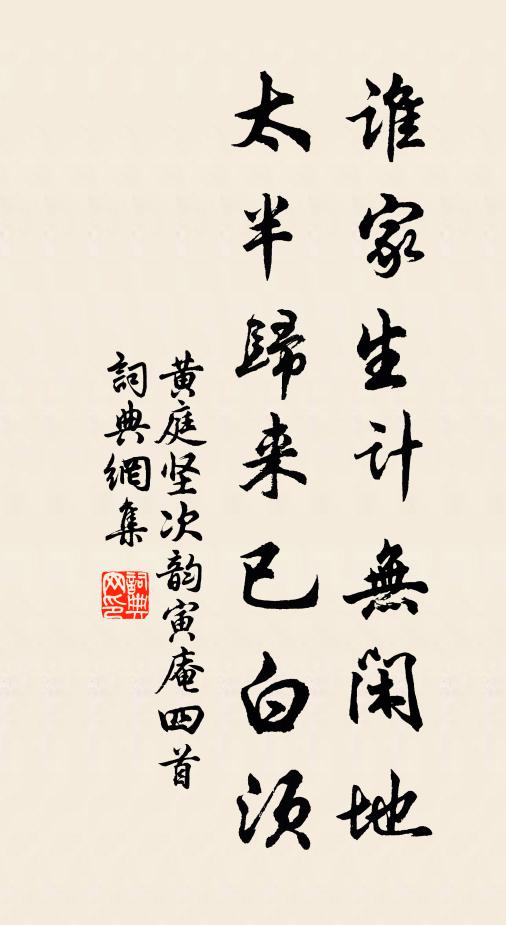 谁家生计無閑地
太半歸来已白须
黄庭坚次韵寅庵四首
詞典網集
詞典网印